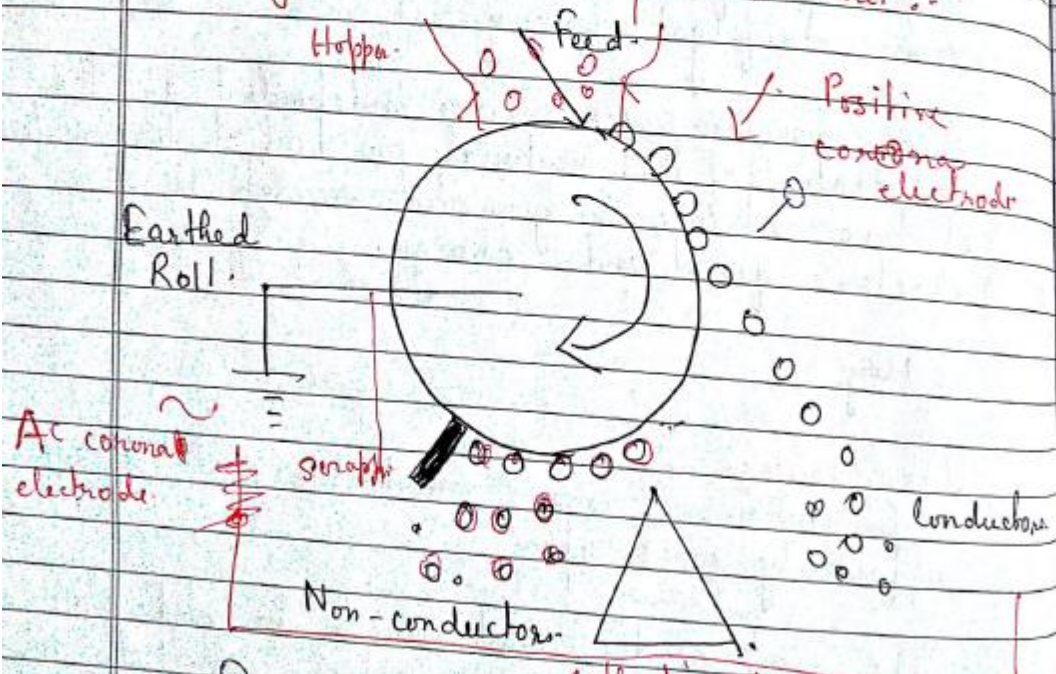 Hopper.
Feed.
Positive
corona
electrode
Earthed
Roll.
AC corona
electrode.
Conductors
Non-conductors.